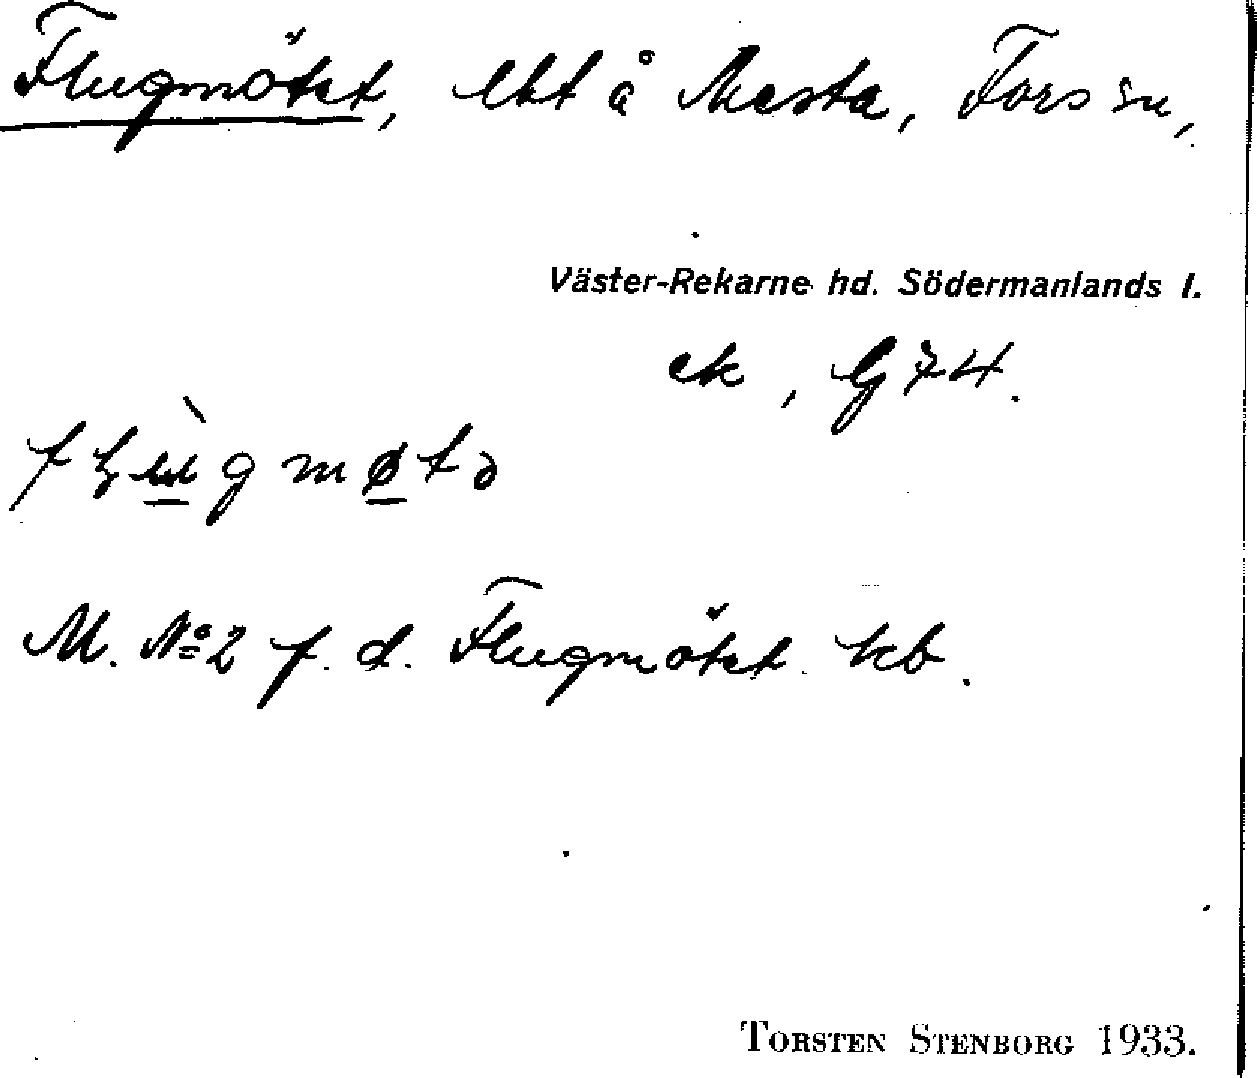 Flugmötet, lht å Mesta, Fors sn,
Väster-Rekarne hd. Södermanlands l.
ek, G 74.
M. No 2 f. d. Flugmötet kb.
TORSTEN STENBORG 1933.